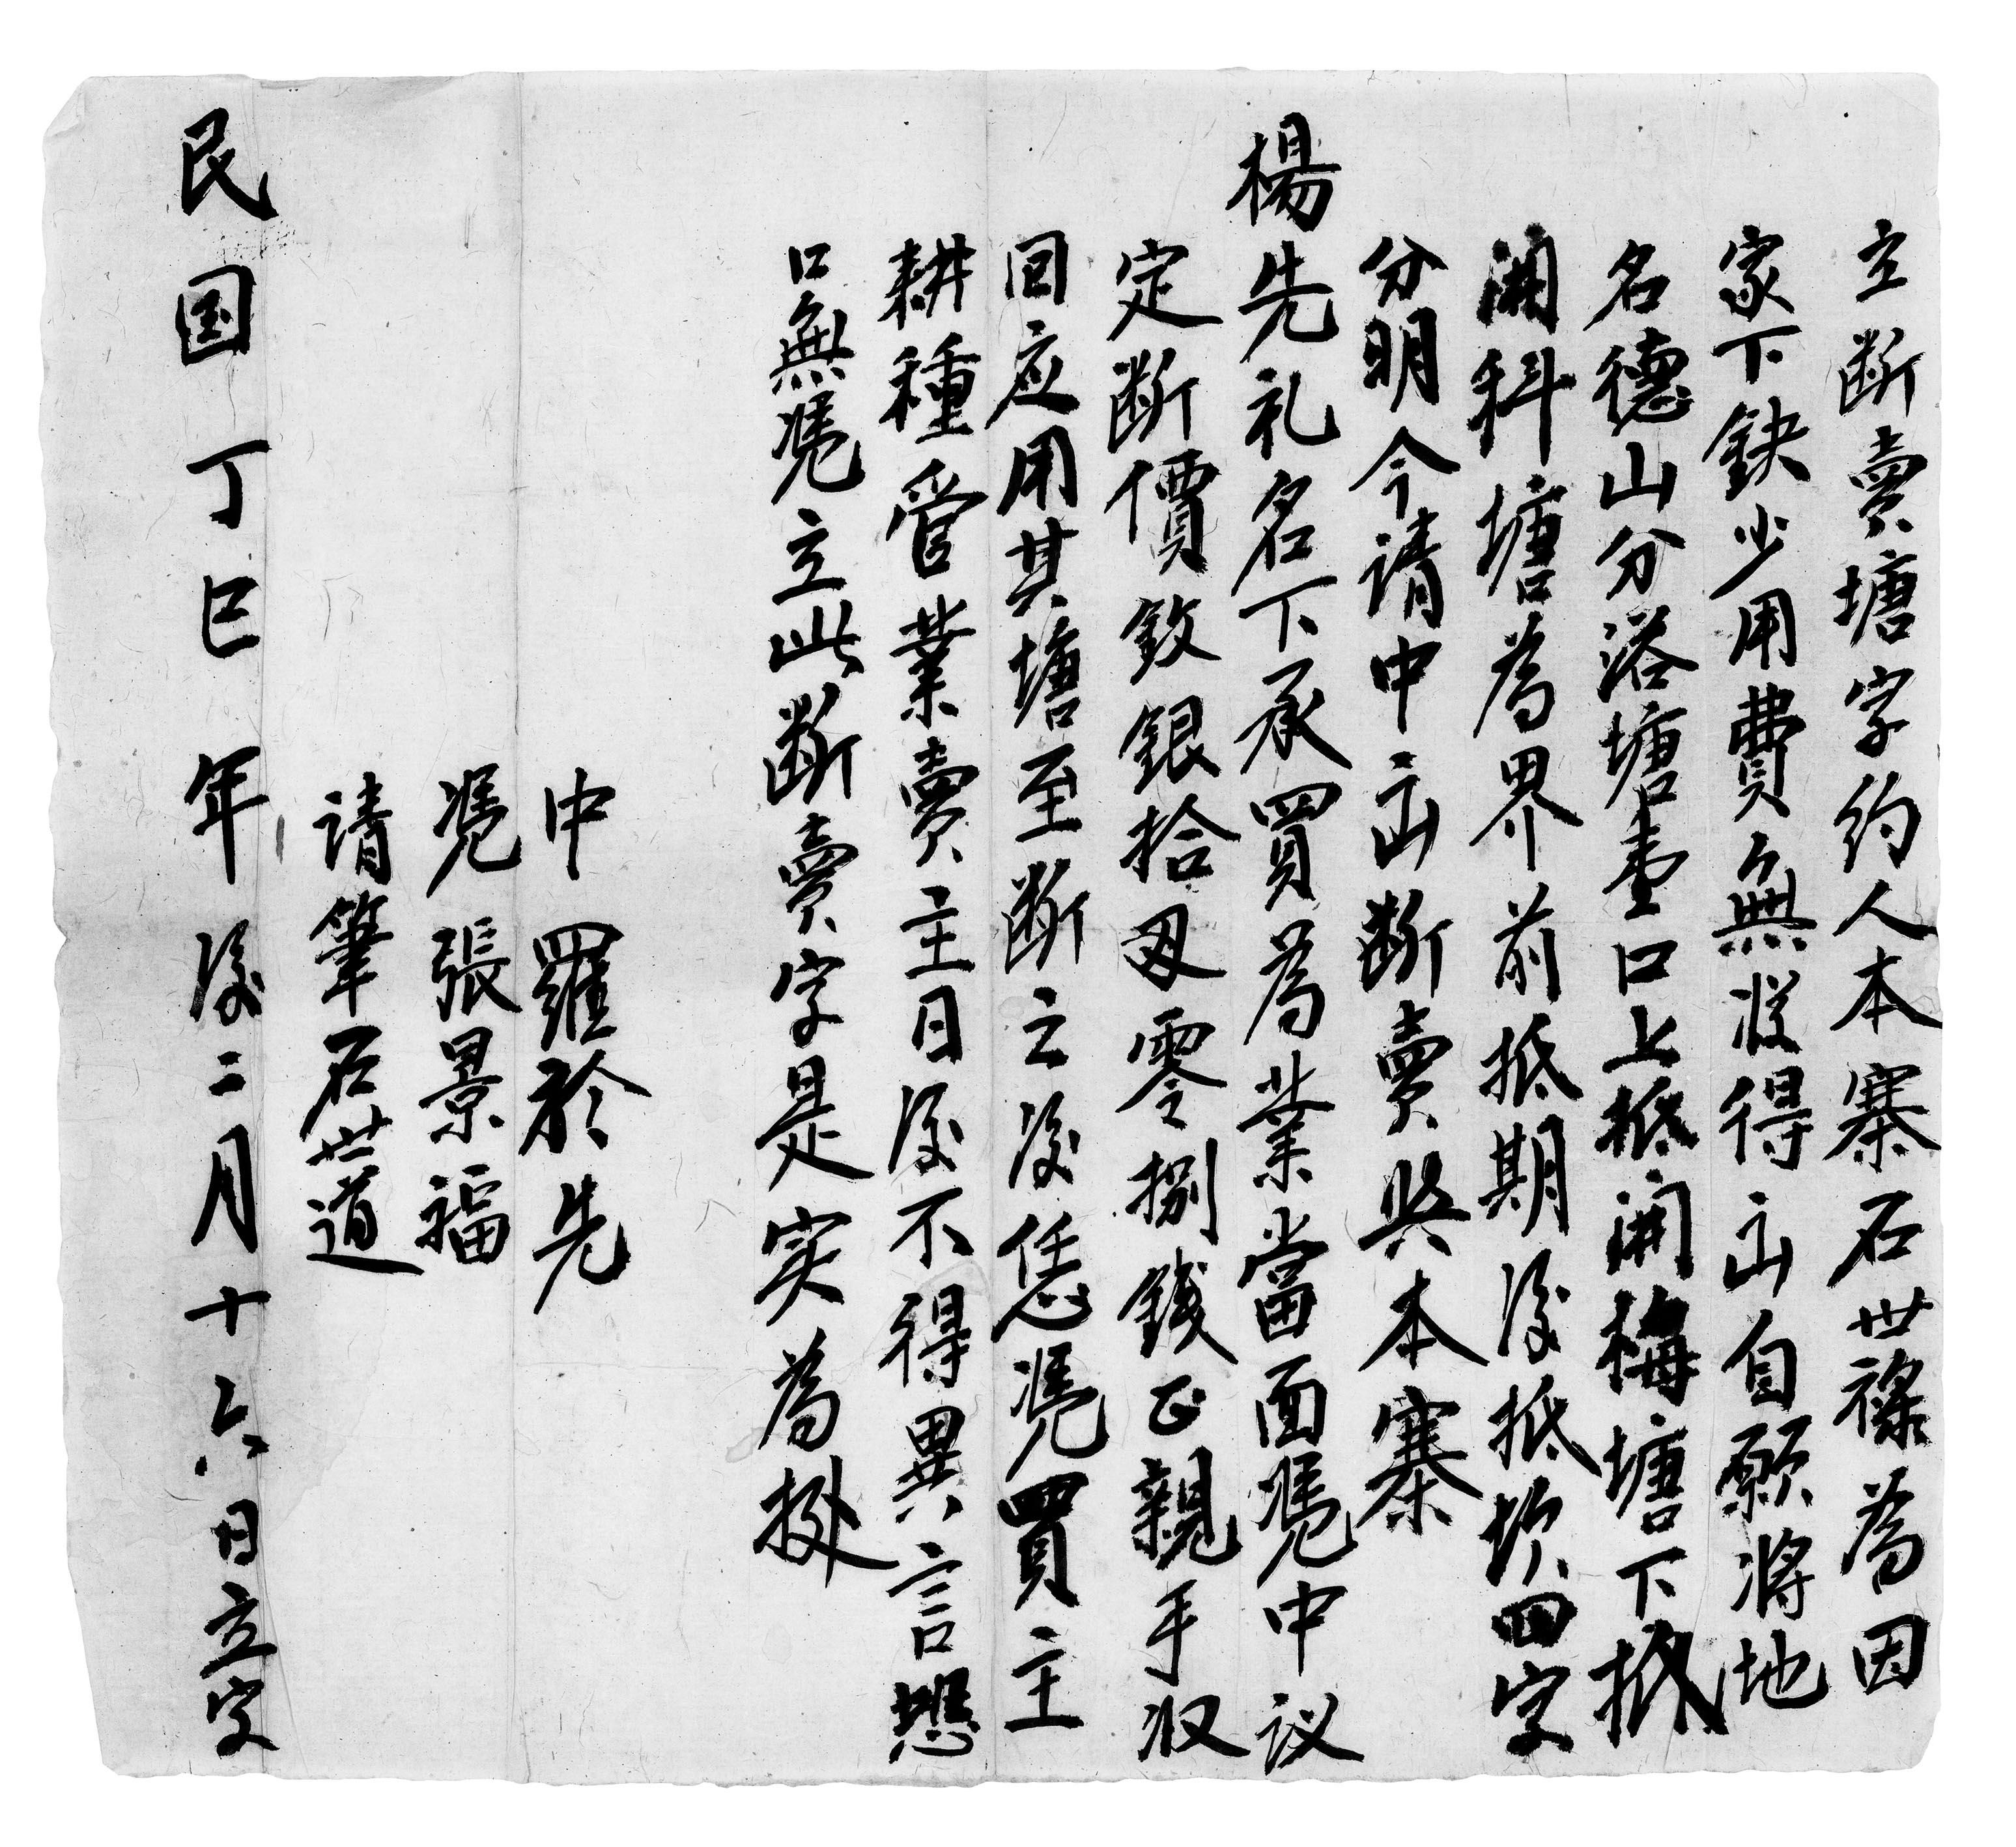 立断賣塘字约人本寨石世禄為因
家下缺少用費無淂得出自願将地
名德山分浴塘壹口上抵開梅塘下抵
開科塘為界前抵期後抵坎四字
分明今请中出断賣與本寨
楊先礼名下承買為業當面凴中议
定断價紋銀拾 零捌錢正親手收
回应用其塘至断之後恁凴買主
耕種管業賣主日後不得異言恐
口無凴立此断賣字是实為拠
中羅於先
凴張景福
请筆石世道
民国丁巳年後二月十六日立字